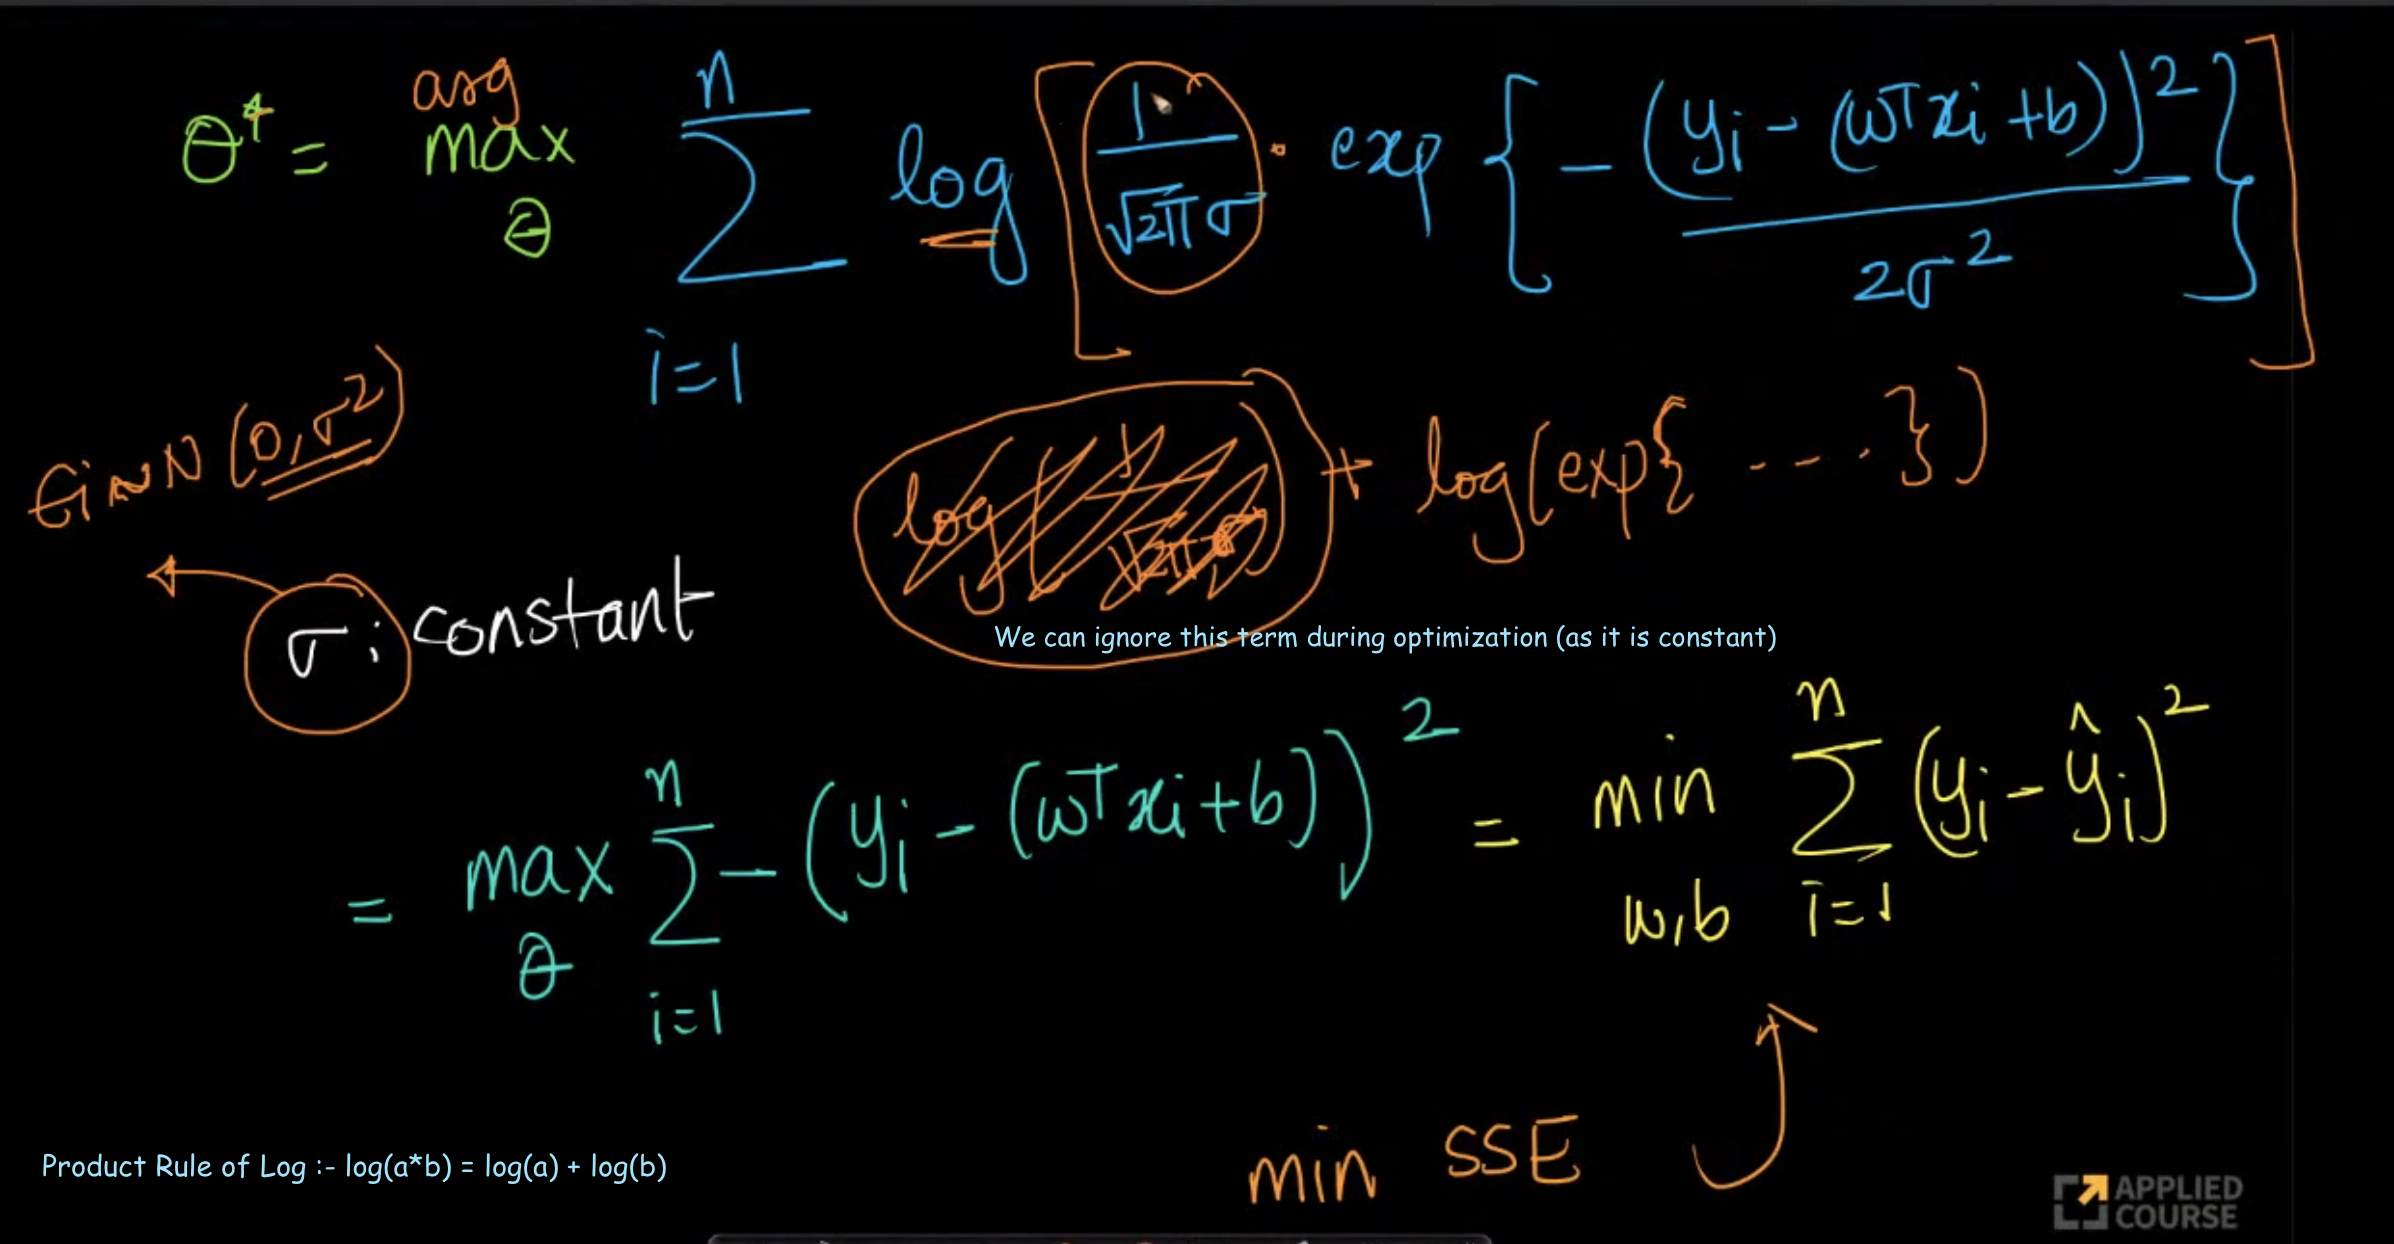 θ* = arg max θ n Σ i=1 log [ 1/√2π σ · exp { - (yi - (wT xi + b))2 / 2σ2 } ]
Ei ~ N (0, σ2)
log ( 1/√2π σ ) + log(exp{ - - - . })
σ: constant
We can ignore this term during optimization (as it is constant)
= max θ n Σ i=1 - (yi - (wT xi + b))2 = min w,b n Σ i=1 (yi - ŷi)2
min SSE
Product Rule of Log :- log(a*b) = log(a) + log(b)
APPLIED
COURSE